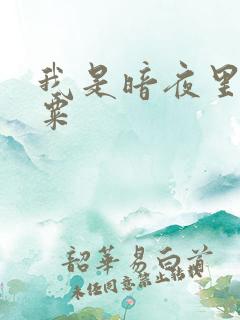 我是暗夜里
粟
韶华易白首
未经同意禁止转载